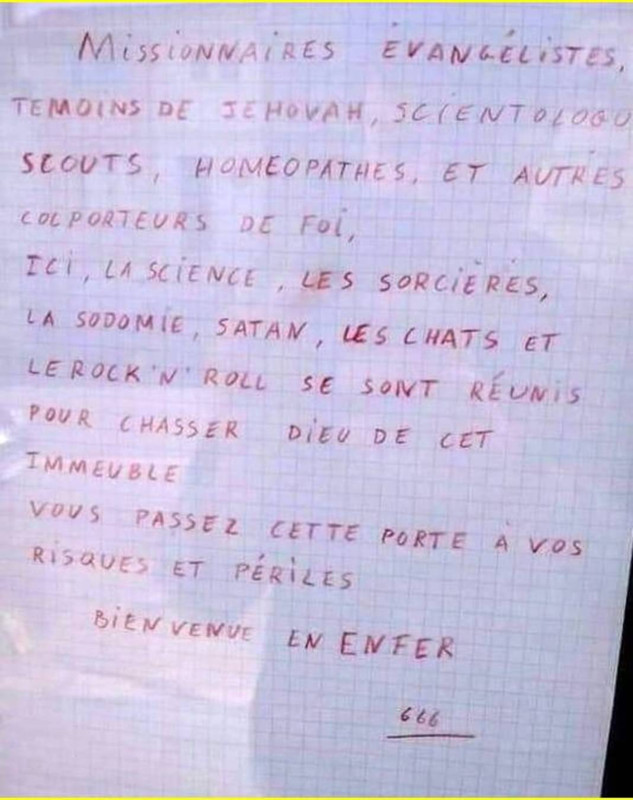 MissiONNAiRES ÉVANGÉLiSTES,
TEMOINS DE JEHOVAH, SCIENTOLOGU
SCOUTS, HOMÉOPATHES, ET AUTRES
COLPORTEURS DE FOi,
ICi, LA SCIENCE, LES SORCIÈRES,
LA SODOMIE, SATAN, LES CHATS ET
LE ROCK'N'ROLL SE SONT RÉUNiS
POUR CHASSER DiEU DE CET
IMMEUBLE
VOUS PASSEZ CETTE PORTE À VOS
RiSQUES ET PÉRiLES
BiENVENUE EN ENFER
666